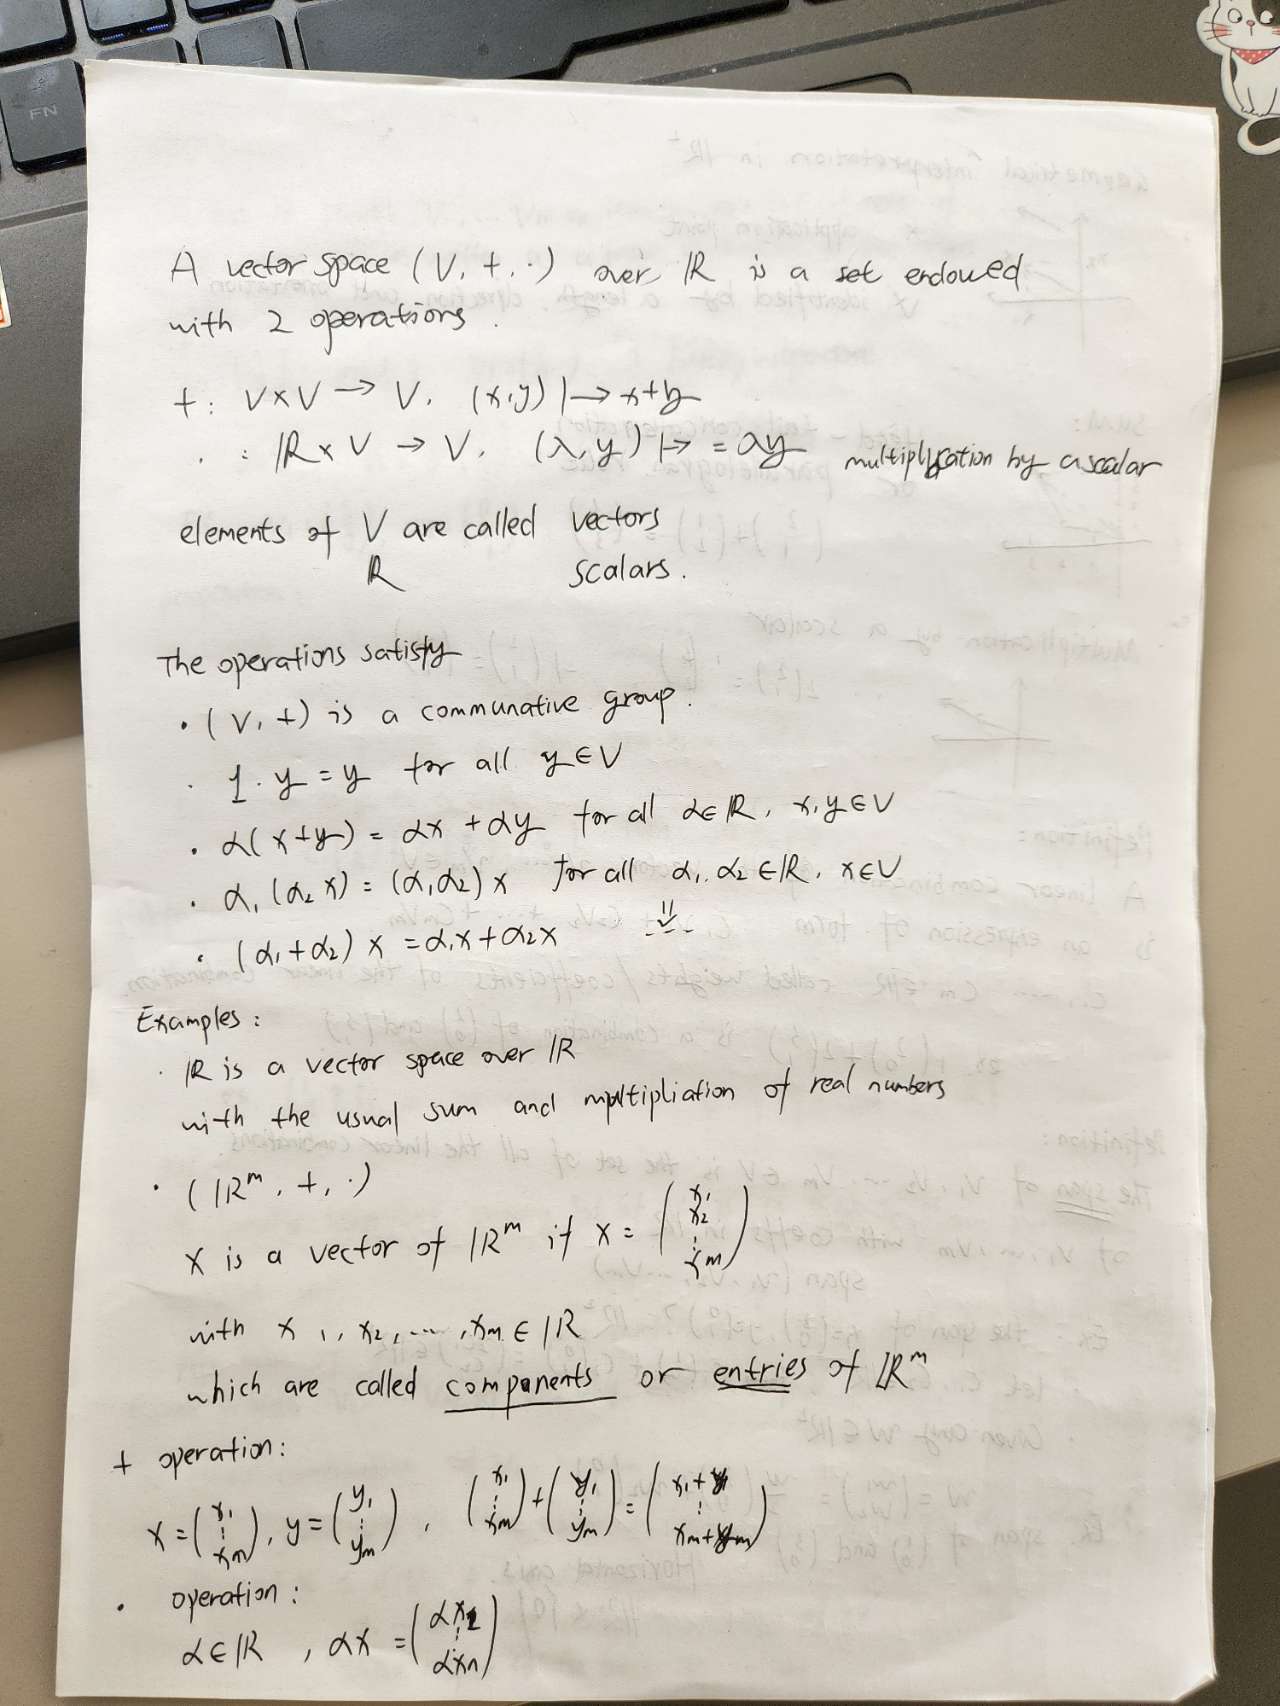 FN
A vector space (V, +, ·) over ℝ is a set endowed
with 2 operations.
+: V×V → V, (x,y) ↦ x+y
· : ℝ×V → V, (λ,y) ↦ = λy multiplication by a scalar
elements of V are called vectors
ℝ scalars.
The operations satisfy
· (V, +) is a communative group.
· 1·y = y for all y∈V
· α(x+y) = αx + αy for all α∈ℝ, x,y∈V
· α₁(α₂x) = (α₁α₂)x for all α₁, α₂∈ℝ, x∈V
· (α₁+α₂)x = α₁x+α₂x
Examples:
· ℝ is a vector space over ℝ
with the usual sum and multipliation of real numbers
· (ℝᵐ, +, ·)
x is a vector of ℝᵐ if x = (x₁ x₂ ⋮ xm)
with x₁, x₂, ..., xm ∈ ℝ
which are called components or entries of ℝᵐ
+ operation:
x = (x₁ ⋮ xm), y = (y₁ ⋮ ym), (x₁ ⋮ xm) + (y₁ ⋮ ym) = (x₁+y₁ ⋮ xm+ym)
· operation:
α∈ℝ, αx = (αx₁ ⋮ αxn)